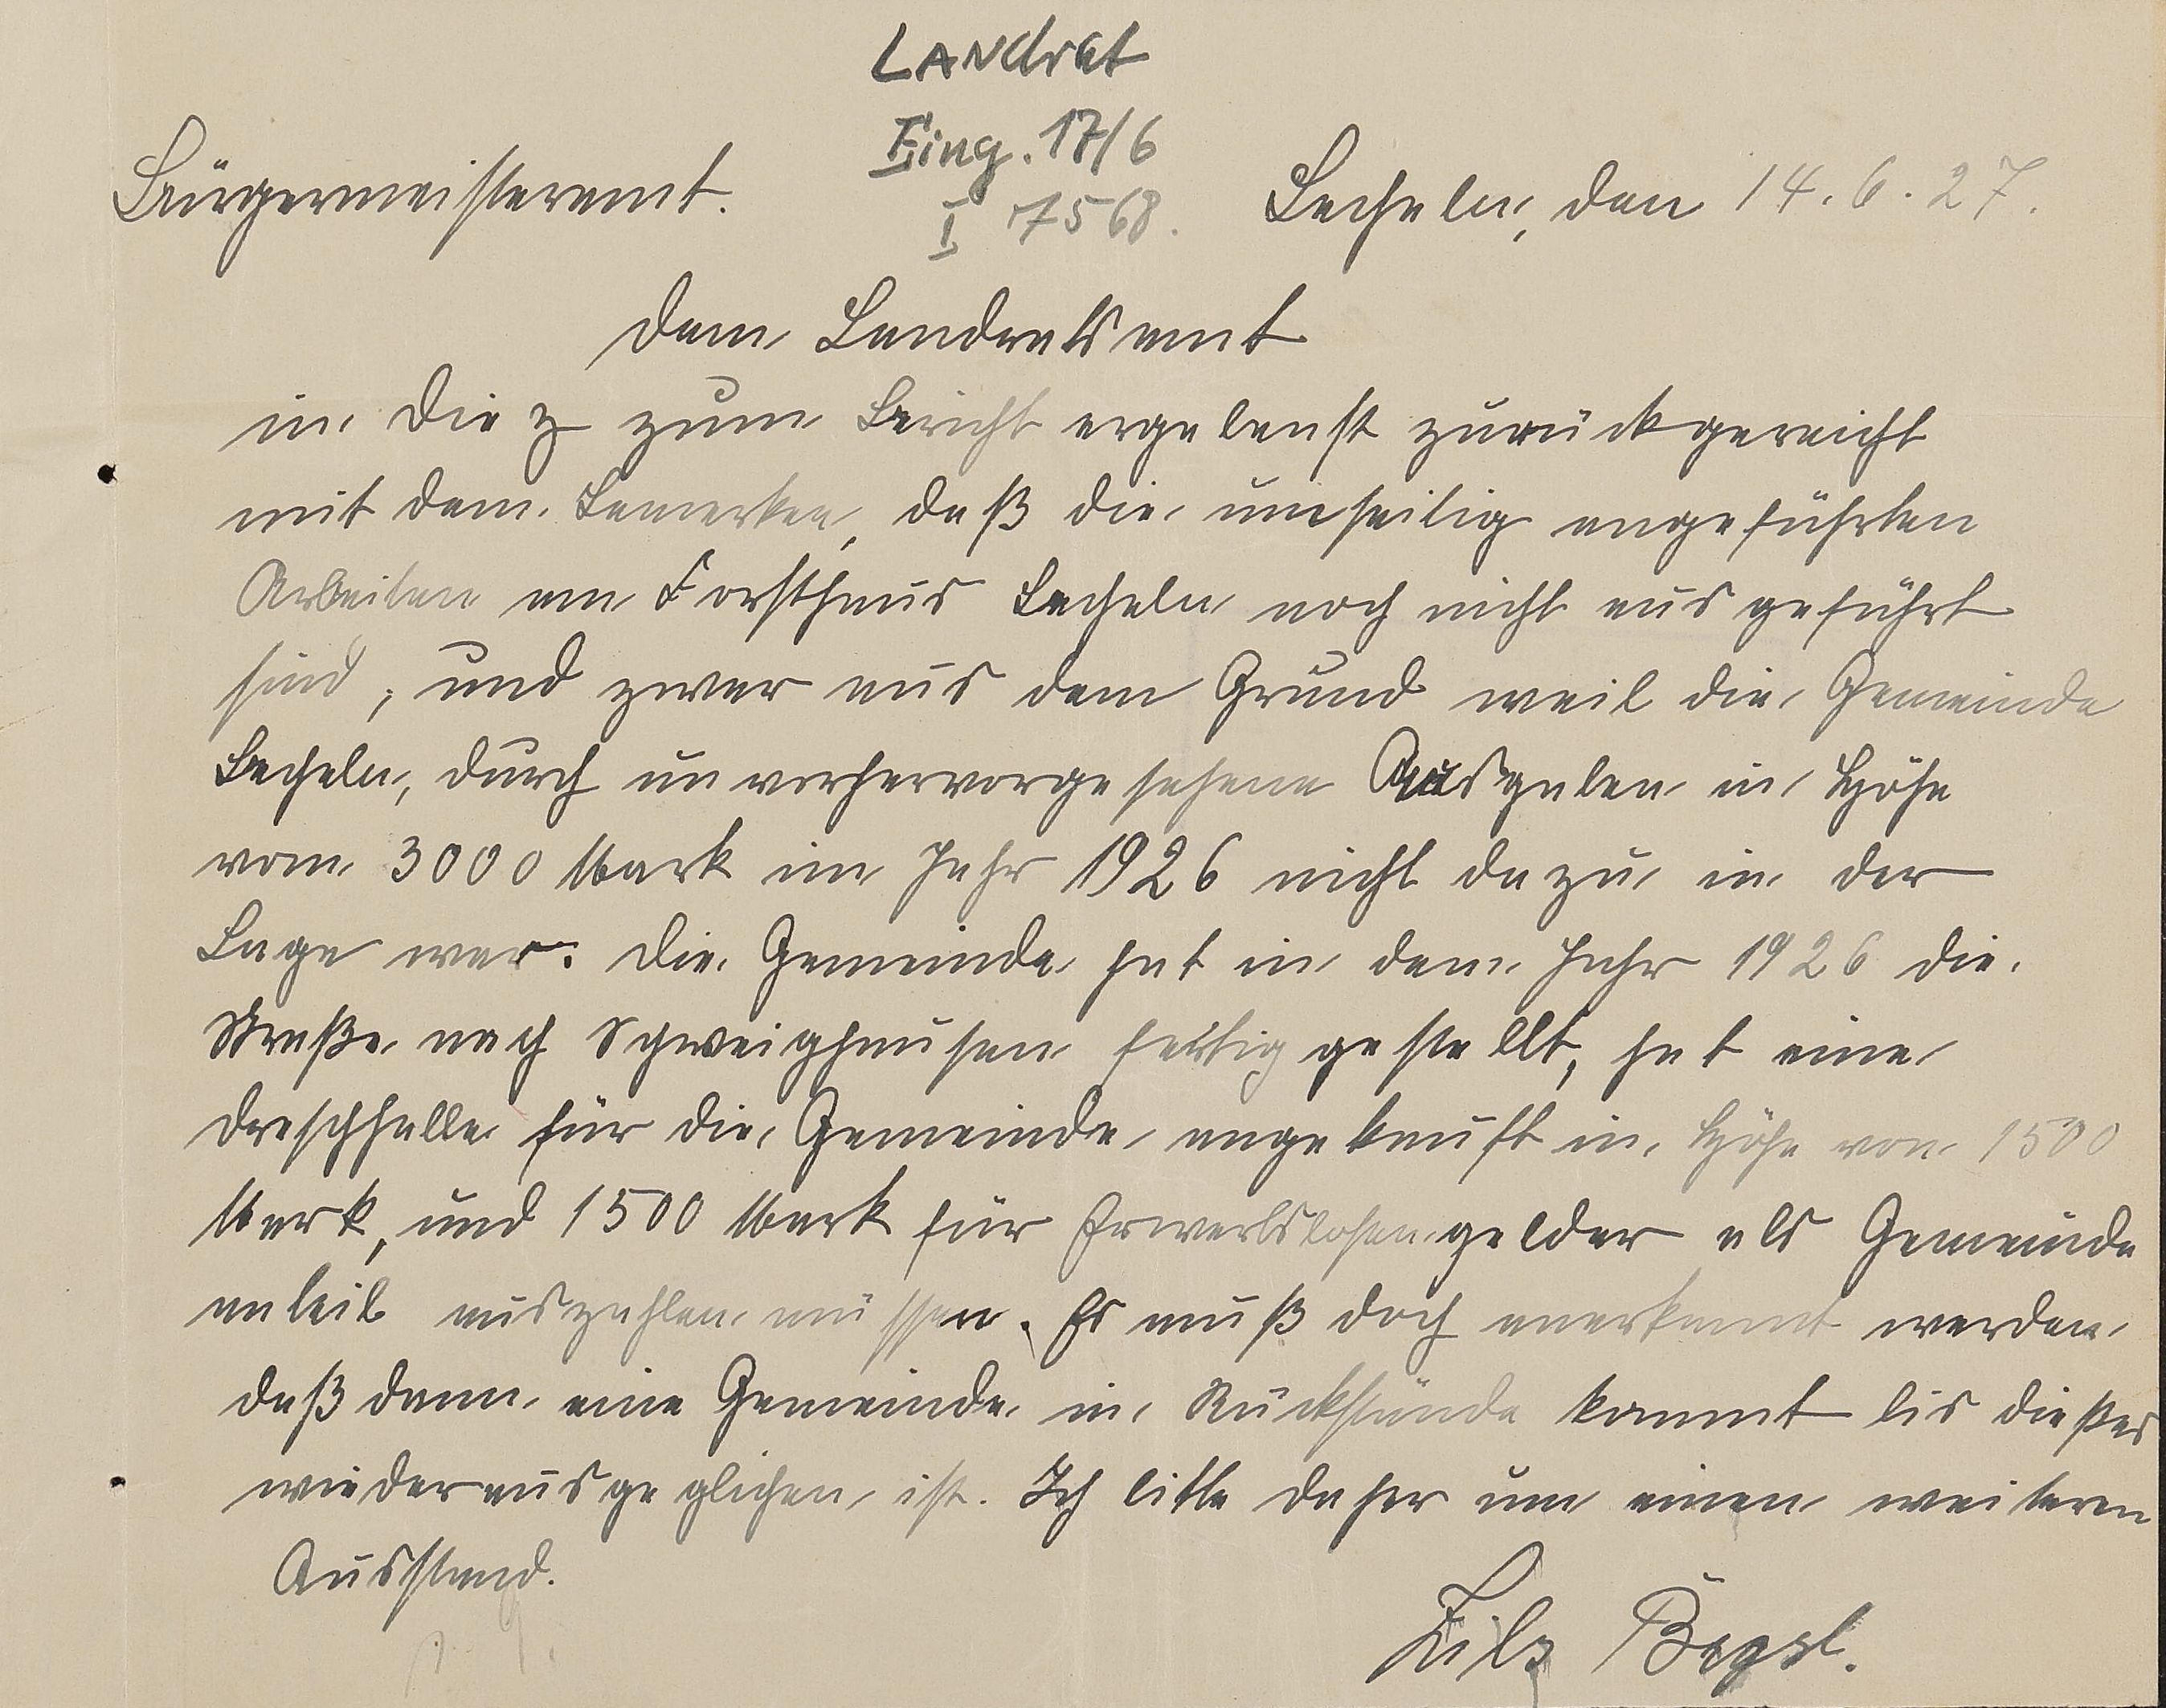 Landrat
Eing. 17/6
I 7568.
Bürgermeisteramt.
Becheln, den 14.6.27.
Dem Landratsamt
in Diez zum Bericht ergebenst zurückgereicht
mit dem Bemerken, daß die umseitig angeführten
Arbeiten am Forsthaus Becheln noch nicht ausgeführt
sind, und zwar aus dem Grund weil die Gemeinde
Becheln, durch unvorhervorgesehene Ausgaben in Höhe
vom 3000 Mark im Jahr 1926 nicht dazu in der
Lage war. Die Gemeinde hat in dem Jahr 1926 die
Straße nach Schweighausen fertig gestellt, hat eine
Dreschhalle für die Gemeinde angekauft in Höhe von 1500
Mark, und 1500 Mark für Erwerbslosengelder als Gemeinde
anteil auszahlen müssen. Es muß doch anerkannt werden
daß dann eine Gemeinde in Rückstände kommt bis dießes
wieder ausgeglichen ist. Ich bitte daher um einen weiteren
Ausstand.
Bürgl.